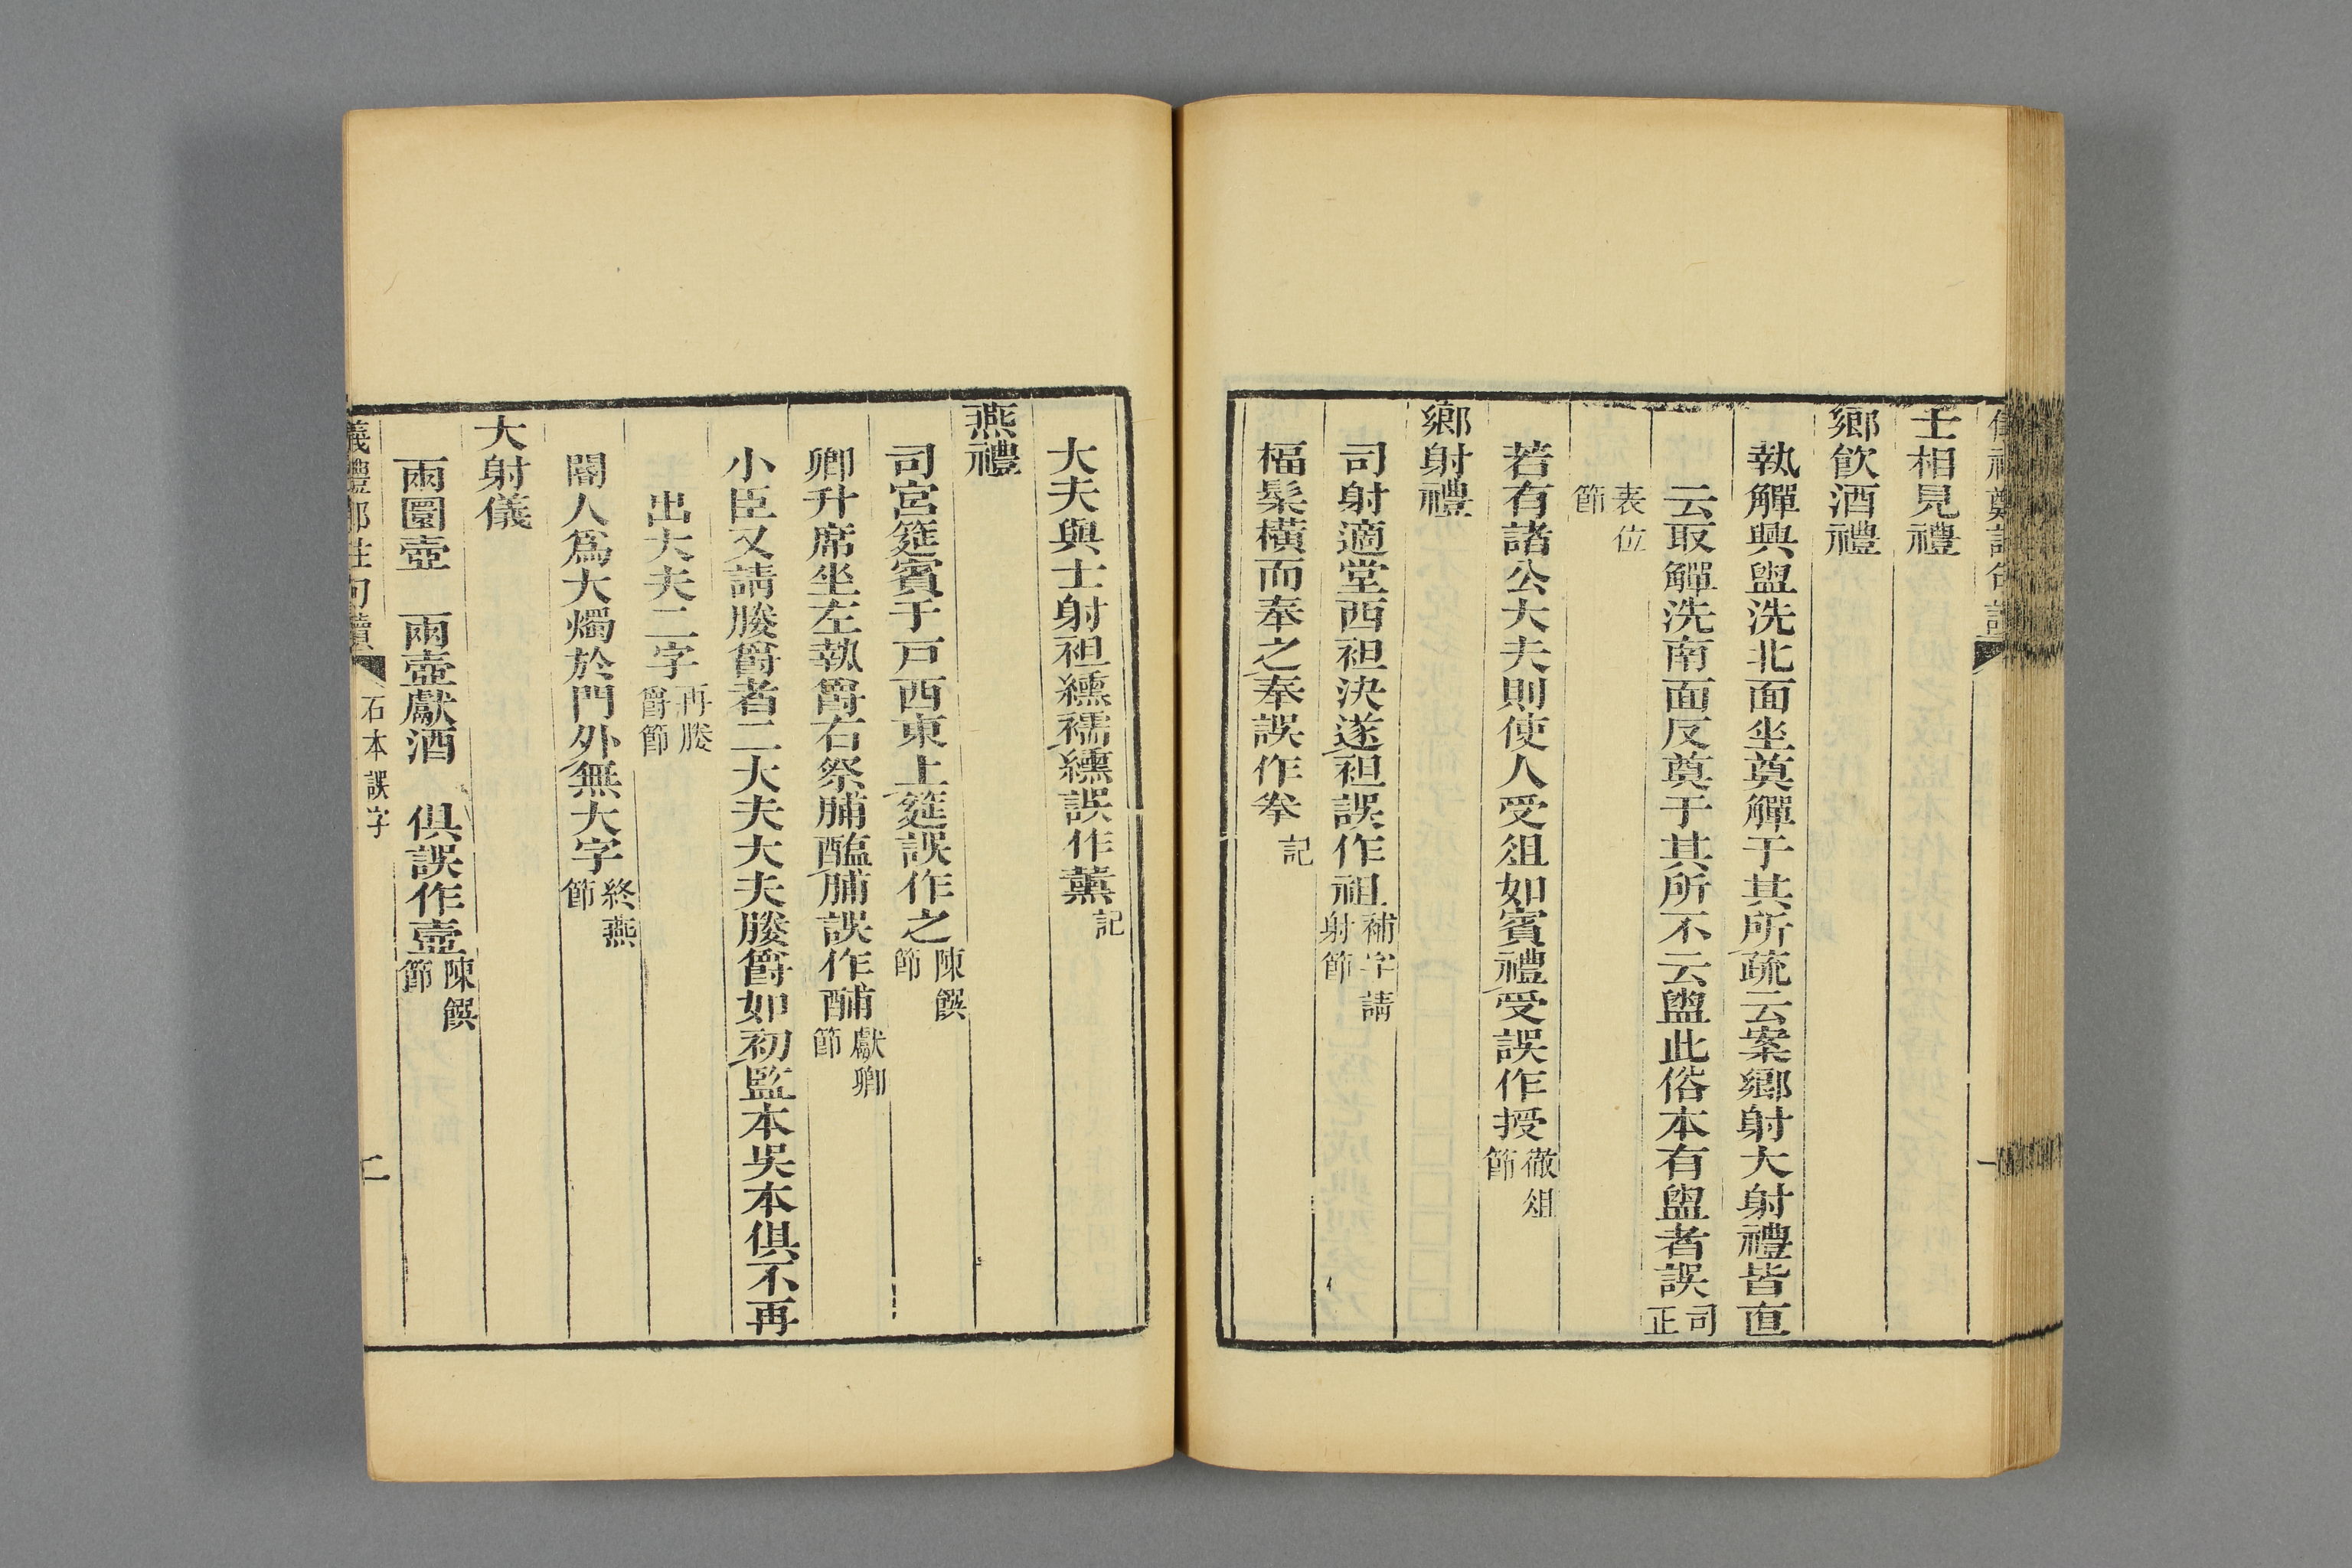 士相見禮
鄉飲酒禮
執觶興盥洗北面坐奠觶于其所疏云案鄉射大射禮皆直
云取觶洗南面反奠于其所不云盥此俗本有盥者誤司正
表位節
若有諸公大夫則使人受俎如賓禮受誤作授徹俎節
鄉射禮
司射適堂西袒決遂袒誤作祖補字請射節
楅髤橫而奉之奉誤作拳記
大夫與士射袒纁襦纁誤作薰記
燕禮
司宮筵賓于戶西東上筵誤作之陳饌節
卿升席坐左執爵右祭脯醢脯誤作酺獻卿節
小臣又請媵爵者二大夫大夫媵爵如初監本吳本俱不再
出大夫二字再媵爵節
閽人爲大燭於門外無大字終燕節
大射儀
兩圜壺　兩壺獻酒　俱誤作壼陳饌節
儀禮鄭註句讀　石本誤字　二